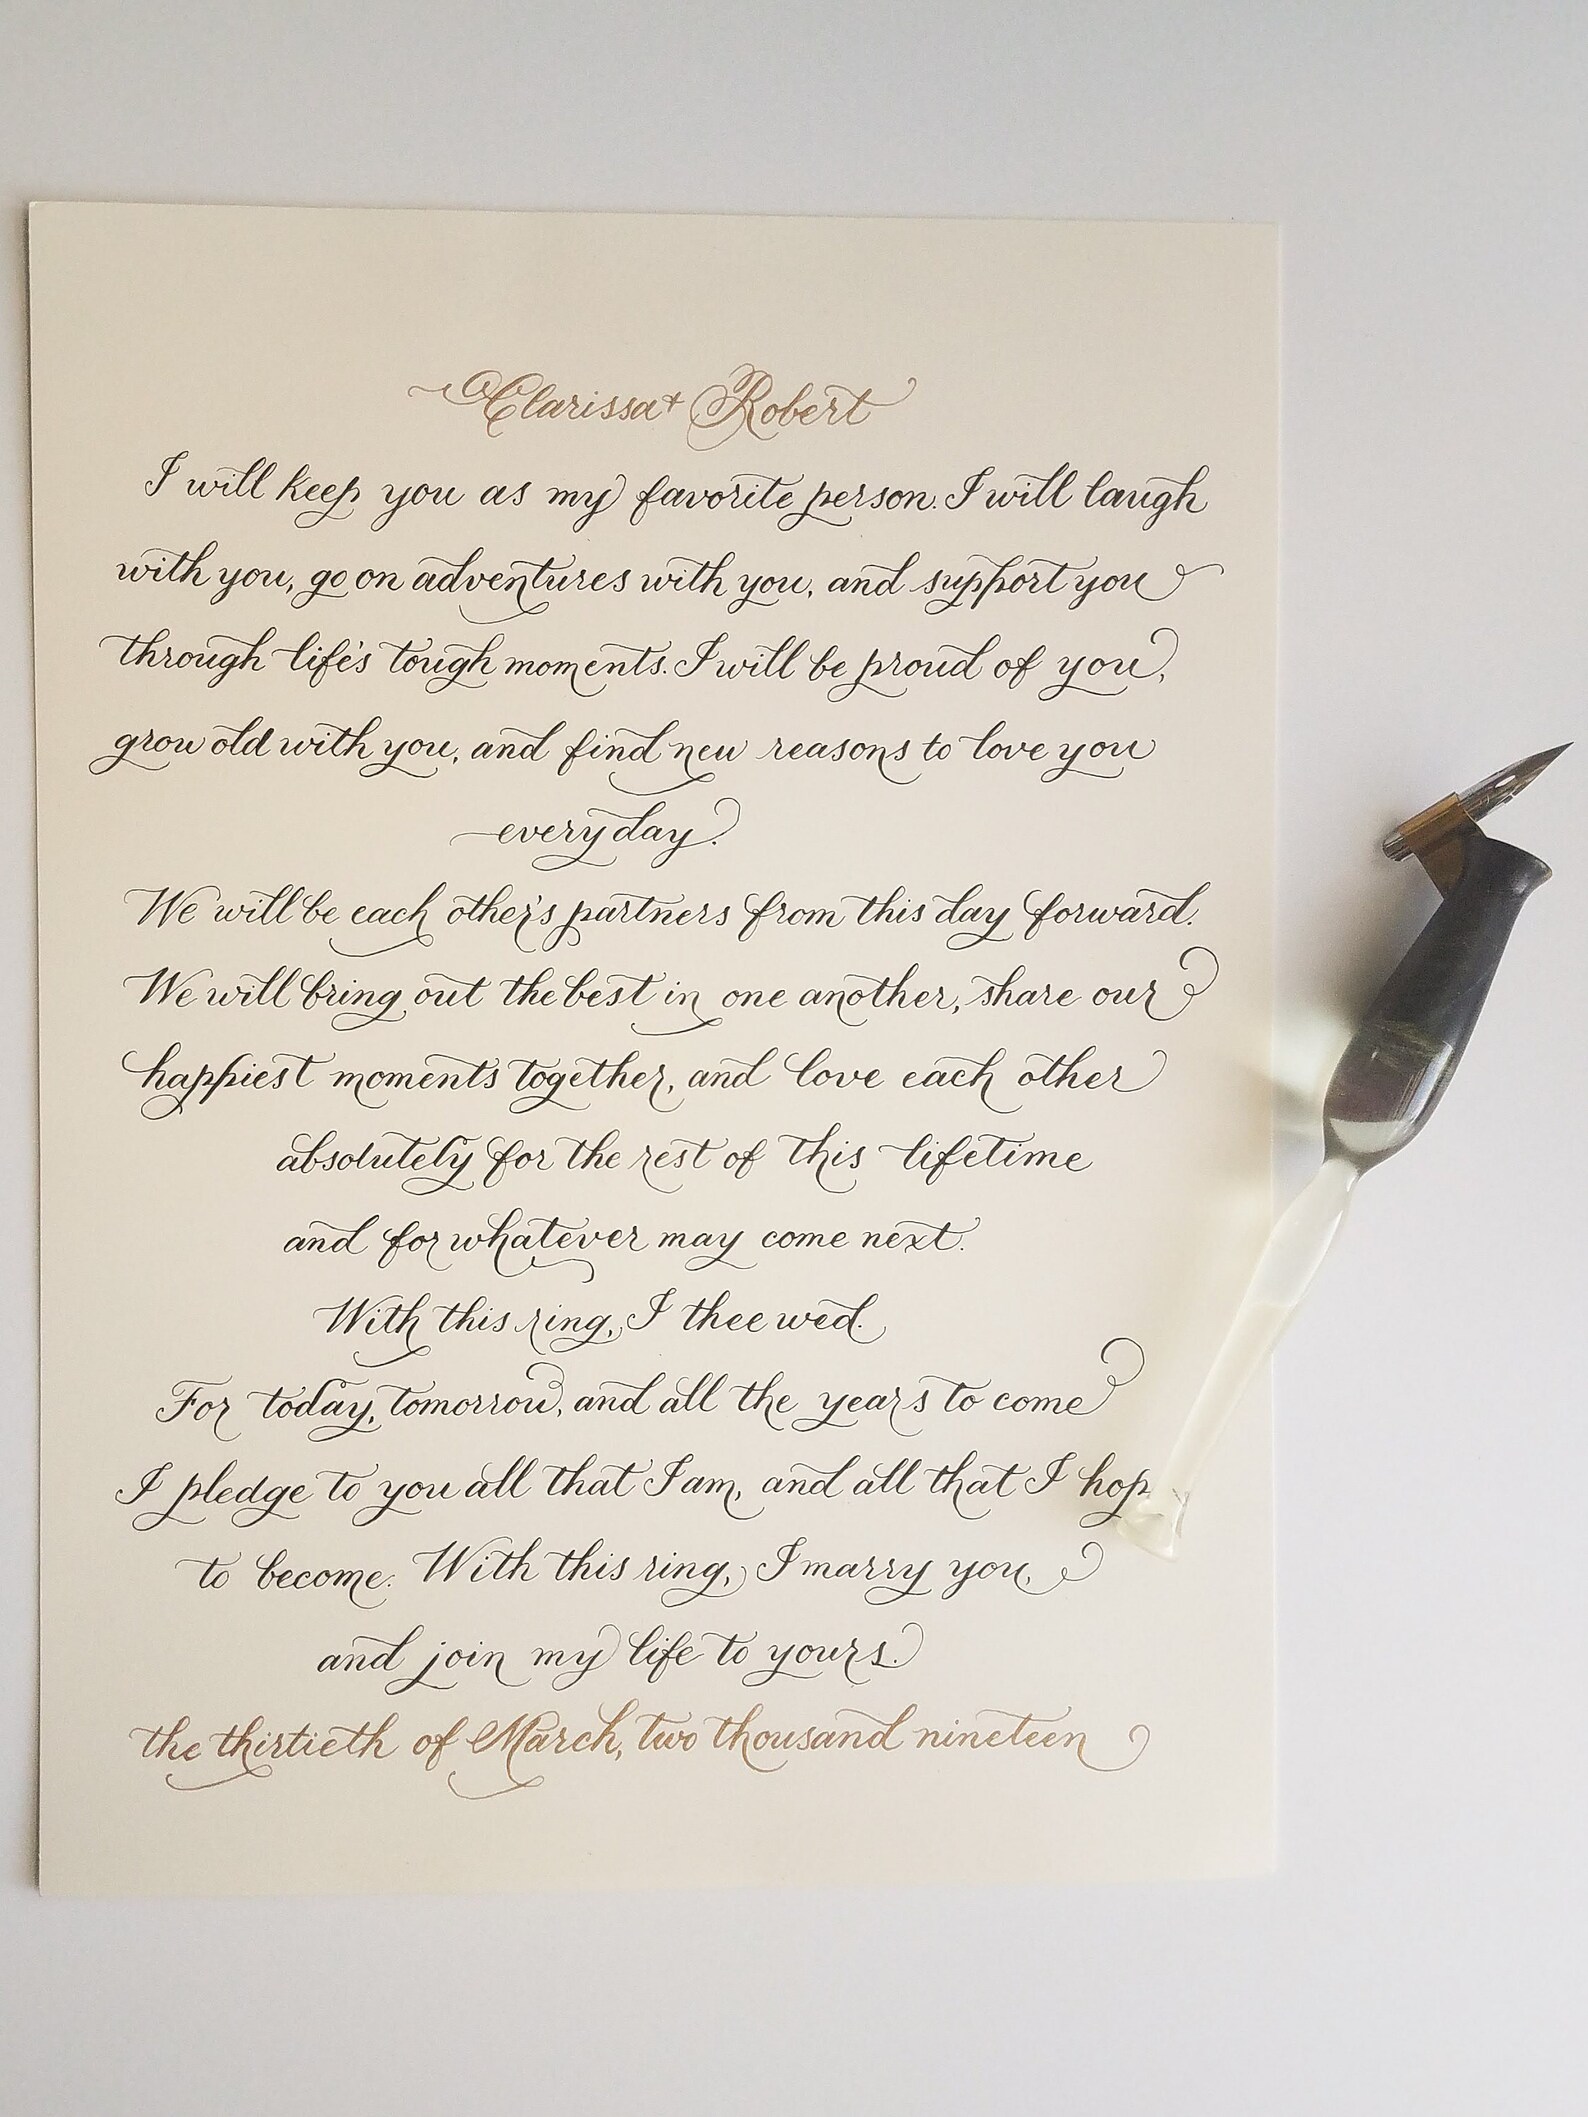 Clarissa + Robert
I will keep you as my favorite person. I will laugh
with you, go on adventures with you, and support you
through life's tough moments. I will be proud of you,
grow old with you, and find new reasons to love you
everyday.
We will be each other's partners from this day forward.
We will bring out the best in one another, share our
happiest moments together, and love each other
absolutely for the rest of this lifetime
and for whatever may come next.
With this ring, I thee wed.
For today, tomorrow, and all the years to come
I pledge to you all that I am, and all that I hop
to become. With this ring, I marry you,
and join my life to yours.
the thirtieth of March, two thousand nineteen